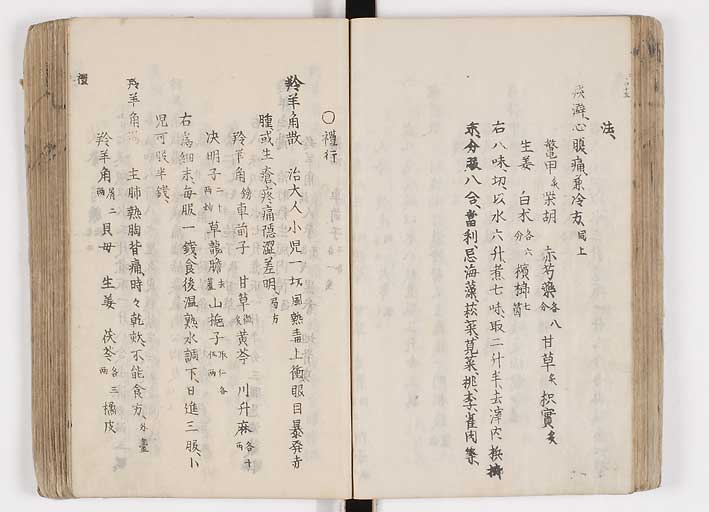 法、
痰澼心腹痛兼冷方 同上
鼈甲 炙 柴胡 赤芍藥 各八分 甘草 炙 枳實 炙
生姜 白朮 各六分 檳榔 七箇
右八味、切、以水六升煮七味、取二升半、去滓、内檳榔
末、分服八合、當利、忌海藻、菘菜、莧菜、桃、李、雀肉等、
○禮行
羚羊角散 治大人小児一切風熱毒上衝眼目暴発赤
腫或生瘡疼痛隠澀羞明、局方
羚羊角 鎊 車前子 甘草 微炙 黄芩 川升麻 各十両
决明子 二十両 草龍膽 去蘆 山梔子 仁各
右為細末、毎服一錢、食後温熟水調下、日進三服、小
児可服半錢、
羚羊角 主肺熱胸背痛、時々乾欬、不能食方、外臺
羚羊角 屑二両 貝母 生姜 茯苓 各三両 橘皮